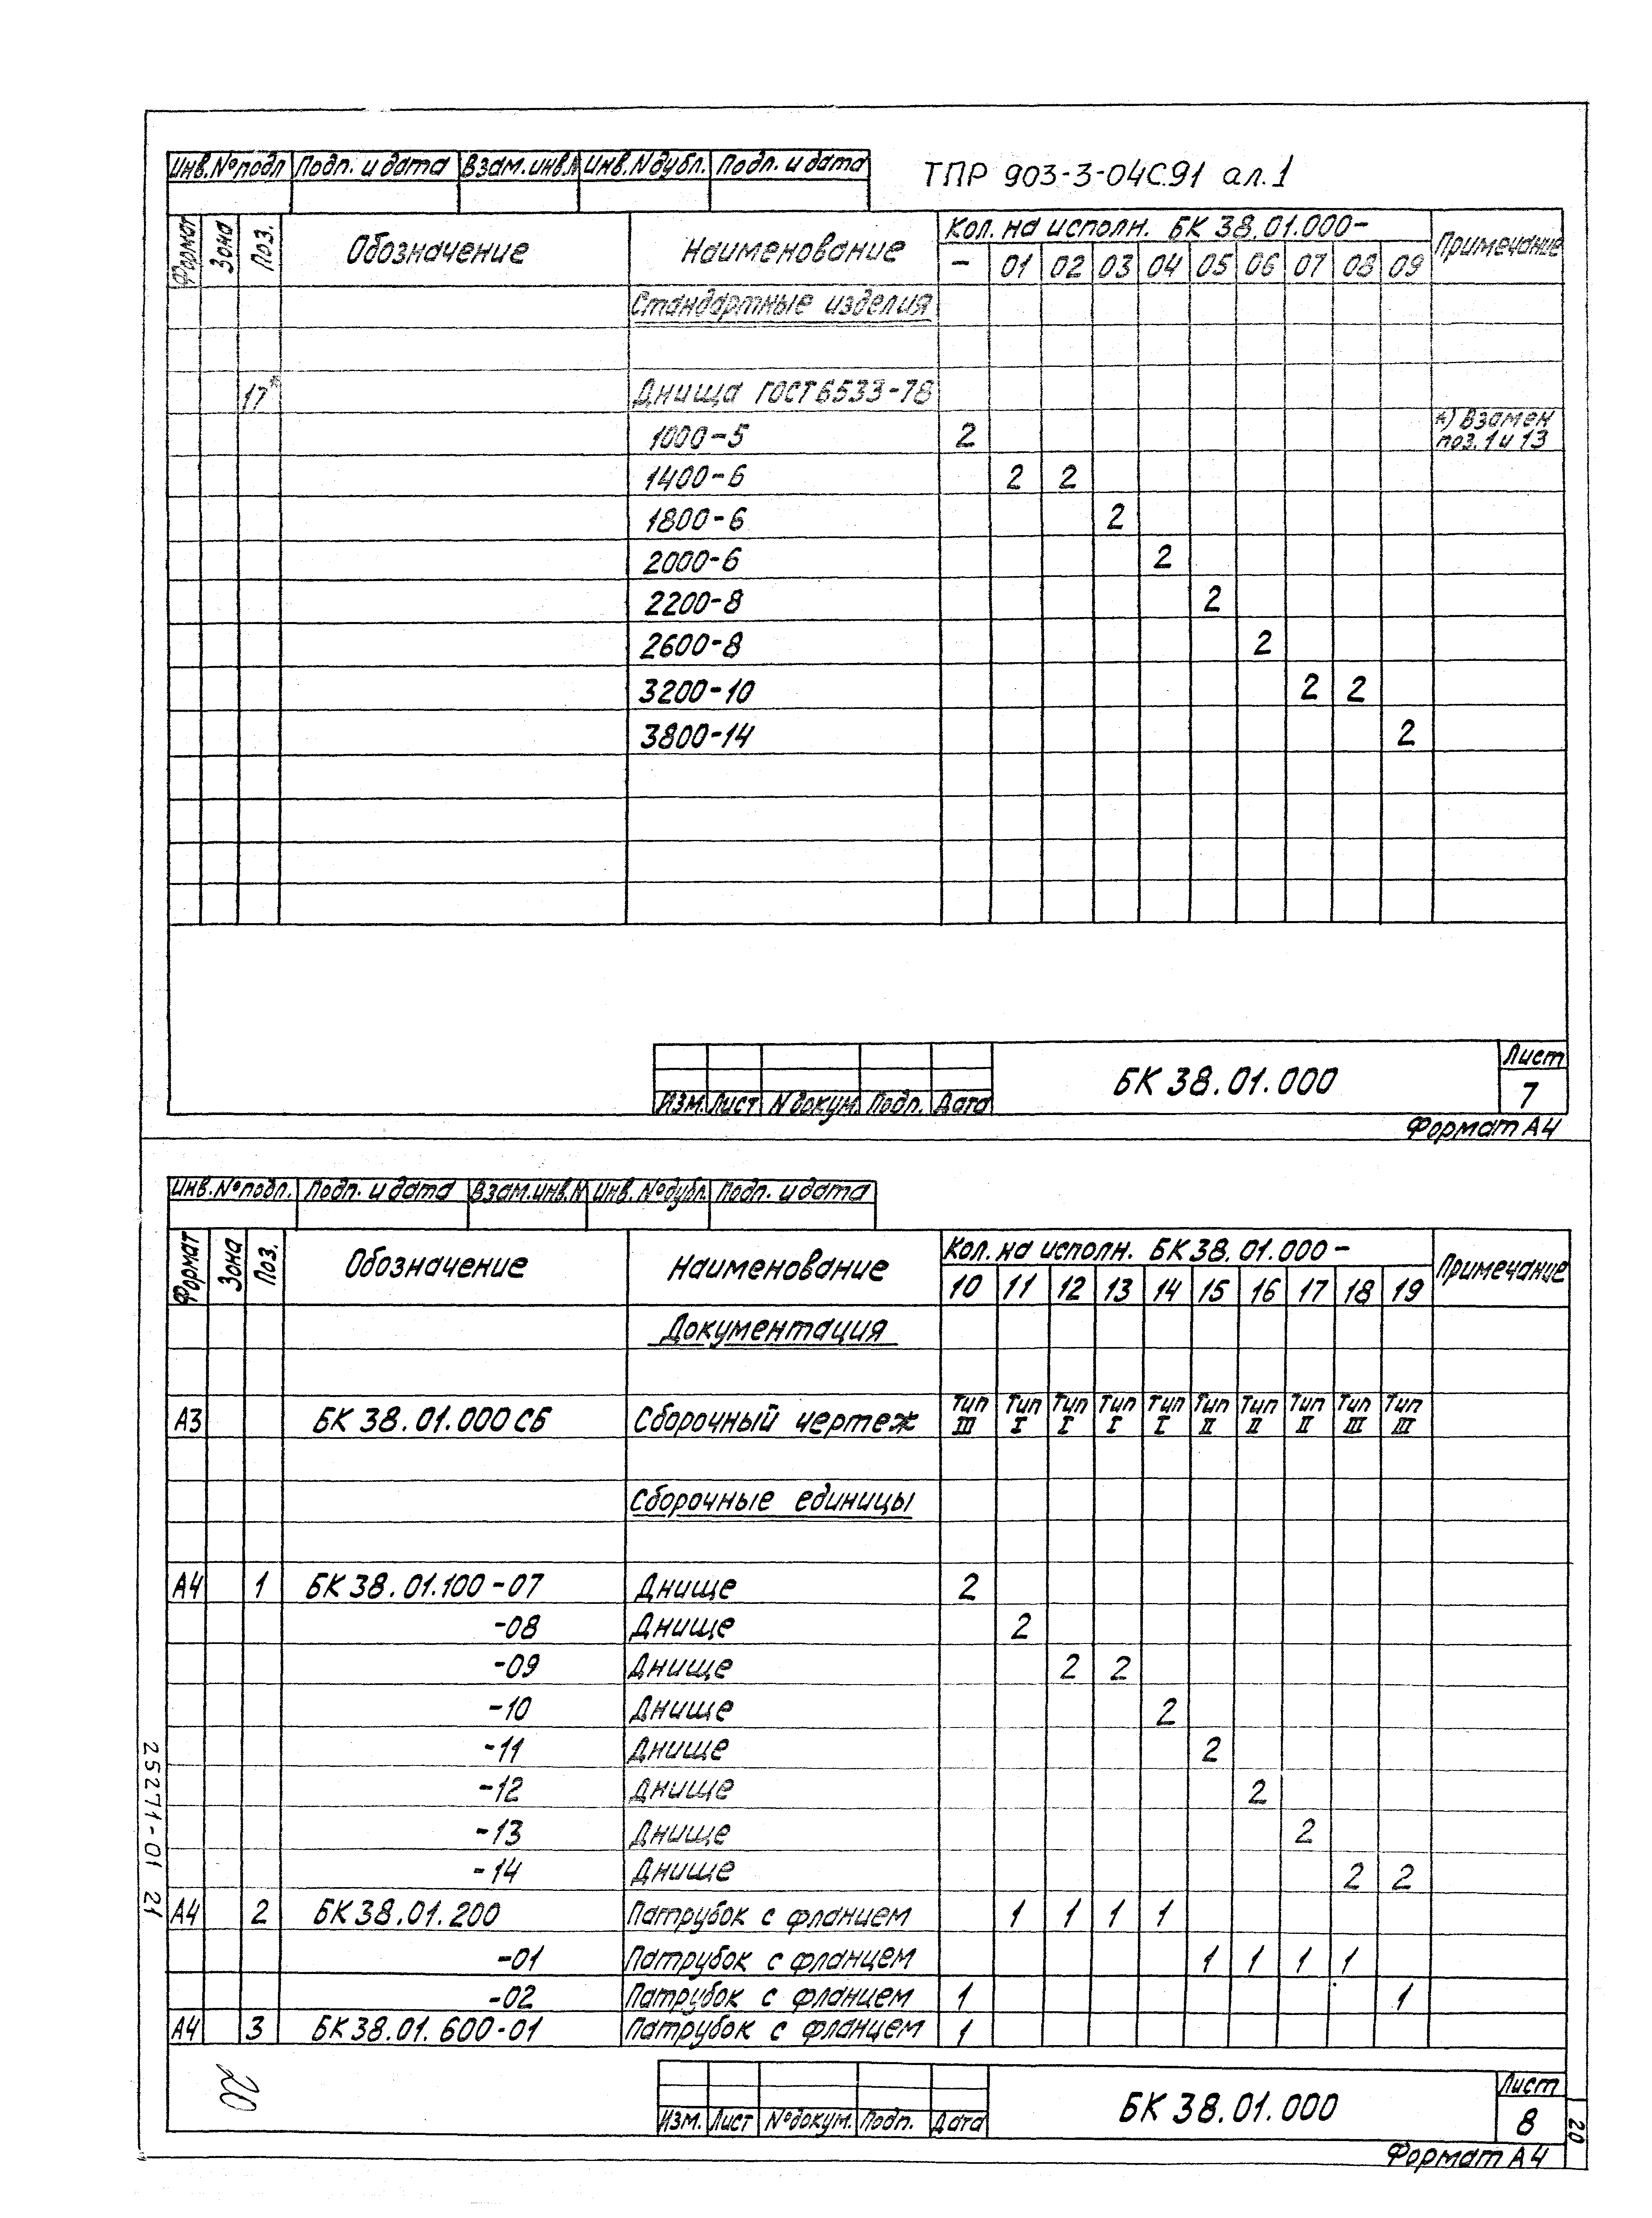 Инв.№подл Подп. и дата Взам.инв.№ Инв.Nдубл. Подп. и дата
ТПР 903-3-04С.91 ал.1
Формат Зона Поз. Обозначение Наименование Кол. на исполн. БК 38.01.000- Примечание
- 01 02 03 04 05 06 07 08 09
Стандартные изделия
17* Днища ГОСТ 6533-78
1000-5 2 *) Взамен поз. 1 и 13
1400-6 2 2
1800-6 2
2000-6 2
2200-8 2
2600-8 2
3200-10 2 2
3800-14 2
Изм. Лист N докум. Подп. Дата
БК 38.01.000
Лист
7
Формат А4
Инв.№подл. Подп. и дата Взам.инв.№ Инв.№дубл. Подп. и дата
Формат Зона Поз. Обозначение Наименование Кол. на исполн. БК 38.01.000- Примечание
10 11 12 13 14 15 16 17 18 19
Документация
А3 БК 38.01.000 СБ Сборочный чертеж Тип III Тип I Тип I Тип I Тип I Тип II Тип II Тип II Тип III Тип III
Сборочные единицы
А4 1 БК 38.01.100-07 Днище 2
-08 Днище 2
-09 Днище 2 2
-10 Днище 2
-11 Днище 2
-12 Днище 2
-13 Днище 2
-14 Днище 2 2
А4 2 БК 38.01.200 Патрубок с фланцем 1 1 1 1
-01 Патрубок с фланцем 1 1 1 1
-02 Патрубок с фланцем 1 1
А4 3 БК 38.01.600-01 Патрубок с фланцем 1
25271-01 21
20
Изм. Лист №докум. Подп. Дата
БК 38.01.000
Лист
8
20
Формат А4